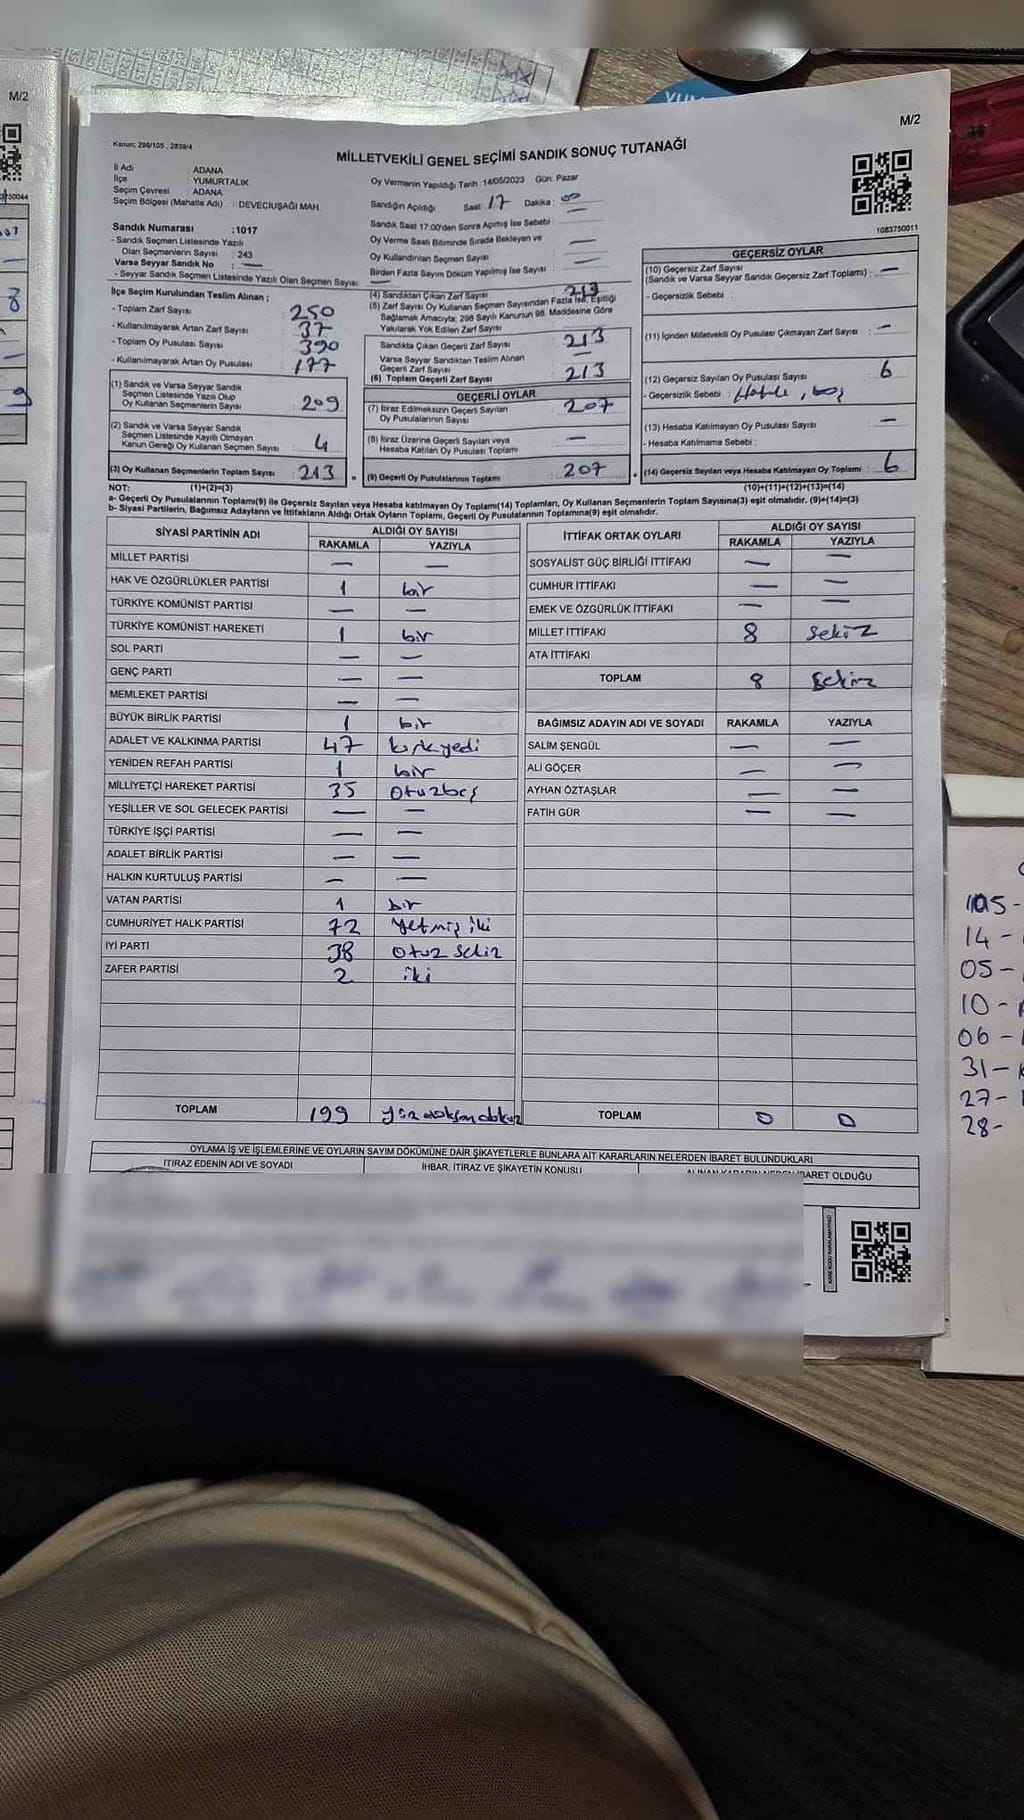 M/2
M/2
Kanun: 298/105 , 2839/4
MİLLETVEKİLİ GENEL SEÇİMİ SANDIK SONUÇ TUTANAĞI
İl Adı : ADANA
İlçe : YUMURTALIK
Seçim Çevresi : ADANA
Seçim Bölgesi (Mahalle Adı) : DEVECİUŞAĞI MAH.
Oy Vermenin Yapıldığı Tarih :14/05/2023 Gün: Pazar
Sandığın Açıldığı Saat: 17 Dakika: 00
Sandık Saat 17:00'den Sonra Açımış İse Sebebi :
Oy Verme Saati Bitiminde Sırada Bekleyen ve
Oy Kullandırılan Seçmen Sayısı : —
Birden Fazla Sayım Döküm Yapılmış İse Sayısı : —
1083750011
Sandık Numarası :1017
- Sandık Seçmen Listesinde Yazılı
Olan Seçmenlerin Sayısı : 243
Varsa Seyyar Sandık No : —
- Seyyar Sandık Seçmen Listesinde Yazılı Olan Seçmen Sayısı : —
İlçe Seçim Kurulundan Teslim Alınan ;
- Toplam Zarf Sayısı : 250
- Kullanılmayarak Artan Zarf Sayısı : 37
- Toplam Oy Pusulası Sayısı : 390
- Kullanılmayarak Artan Oy Pusulası : 177
(1) Sandık ve Varsa Seyyar Sandık
Seçmen Listesinde Yazılı Olup
Oy Kullanan Seçmenlerin Sayısı : 209
(2) Sandık ve Varsa Seyyar Sandık
Seçmen Listesinde Kayıtlı Olmayan
Kanun Gereği Oy Kullanan Seçmen Sayısı : 4
(3) Oy Kullanan Seçmenlerin Toplam Sayısı : 213
(4) Sandıktan Çıkan Zarf Sayısı : 213
(5) Zarf Sayısı Oy Kullanan Seçmen Sayısından Fazla İse, Eşitliği
Sağlamak Amacıyla; 298 Sayılı Kanunun 98. Maddesine Göre
Yakılarak Yok Edilen Zarf Sayısı :
Sandıkta Çıkan Geçerli Zarf Sayısı : 213
Varsa Seyyar Sandıktan Teslim Alınan
Geçerli Zarf Sayısı : —
(6) Toplam Geçerli Zarf Sayısı : 213
GEÇERLİ OYLAR
(7) İtiraz Edilmeksizin Geçerli Sayılan
Oy Pusulalarının Sayısı : 207
(8) İtiraz Üzerine Geçerli Sayılan veya
Hesaba Katılan Oy Pusulası Toplamı : —
(9) Geçerli Oy Pusulalarının Toplamı : 207
GEÇERSİZ OYLAR
(10) Geçersiz Zarf Sayısı
(Sandık ve Varsa Seyyar Sandık Geçersiz Zarf Toplamı) : —
- Geçersizlik Sebebi :
(11) İçinden Milletvekili Oy Pusulası Çıkmayan Zarf Sayısı : —
(12) Geçersiz Sayılan Oy Pusulası Sayısı : 6
- Geçersizlik Sebebi : Hatalı , boş
(13) Hesaba Katılmayan Oy Pusulası Sayısı : —
- Hesaba Katılmama Sebebi :
(14) Geçersiz Sayılan veya Hesaba Katılmayan Oy Toplamı : 6
NOT: (1)+(2)=(3) (10)+(11)+(12)+(13)=(14)
a- Geçerli Oy Pusulalarının Toplamı(9) ile Geçersiz Sayılan veya Hesaba katılmayan Oy Toplamı(14) Toplamları, Oy Kullanan Seçmenlerin Toplam Sayısına(3) eşit olmalıdır. (9)+(14)=(3)
b- Siyasi Partilerin, Bağımsız Adayların ve İttifakların Aldığı Ortak Oyların Toplamı, Geçerli Oy Pusulalarının Toplamına(9) eşit olmalıdır.
SİYASİ PARTİNİN ADI ALDIĞI OY SAYISI
RAKAMLA YAZIYLA
MİLLET PARTİSİ — —
HAK VE ÖZGÜRLÜKLER PARTİSİ 1 bir
TÜRKİYE KOMÜNİST PARTİSİ — —
TÜRKİYE KOMÜNİST HAREKETİ 1 bir
SOL PARTİ — —
GENÇ PARTİ — —
MEMLEKET PARTİSİ — —
BÜYÜK BİRLİK PARTİSİ 1 bir
ADALET VE KALKINMA PARTİSİ 47 kırkyedi
YENİDEN REFAH PARTİSİ 1 bir
MİLLİYETÇİ HAREKET PARTİSİ 35 otuzbeş
YEŞİLLER VE SOL GELECEK PARTİSİ — —
TÜRKİYE İŞÇİ PARTİSİ — —
ADALET BİRLİK PARTİSİ — —
HALKIN KURTULUŞ PARTİSİ — —
VATAN PARTİSİ 1 bir
CUMHURİYET HALK PARTİSİ 72 yetmiş iki
İYİ PARTİ 38 otuz sekiz
ZAFER PARTİSİ 2 iki
TOPLAM 199 yüz doksan dokuz
İTTİFAK ORTAK OYLARI ALDIĞI OY SAYISI
RAKAMLA YAZIYLA
SOSYALİST GÜÇ BİRLİĞİ İTTİFAKI — —
CUMHUR İTTİFAKI — —
EMEK VE ÖZGÜRLÜK İTTİFAKI — —
MİLLET İTTİFAKI 8 sekiz
ATA İTTİFAKI
TOPLAM 8 sekiz
BAĞIMSIZ ADAYIN ADI VE SOYADI RAKAMLA YAZIYLA
SALİM ŞENGÜL — —
ALİ GÖÇER — —
AYHAN ÖZTAŞLAR — —
FATİH GÜR — —
TOPLAM 0 0
OYLAMA İŞ VE İŞLEMLERİNE VE OYLARIN SAYIM DÖKÜMÜNE DAİR ŞİKAYETLERLE BUNLARA AİT KARARLARIN NELERDEN İBARET BULUNDUKLARI
İTİRAZ EDENİN ADI VE SOYADI İHBAR, İTİRAZ VE ŞİKAYETİN KONUSU ALINAN KARARIN NEDEN İBARET OLDUĞU
105 -
14 -
05 -
10 -
06 -
31 -
27 -
28 -